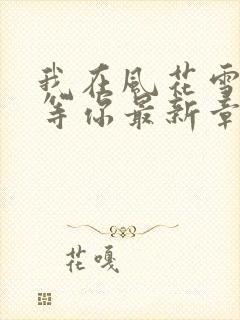 我在風花雪
等你最新章
花嘎